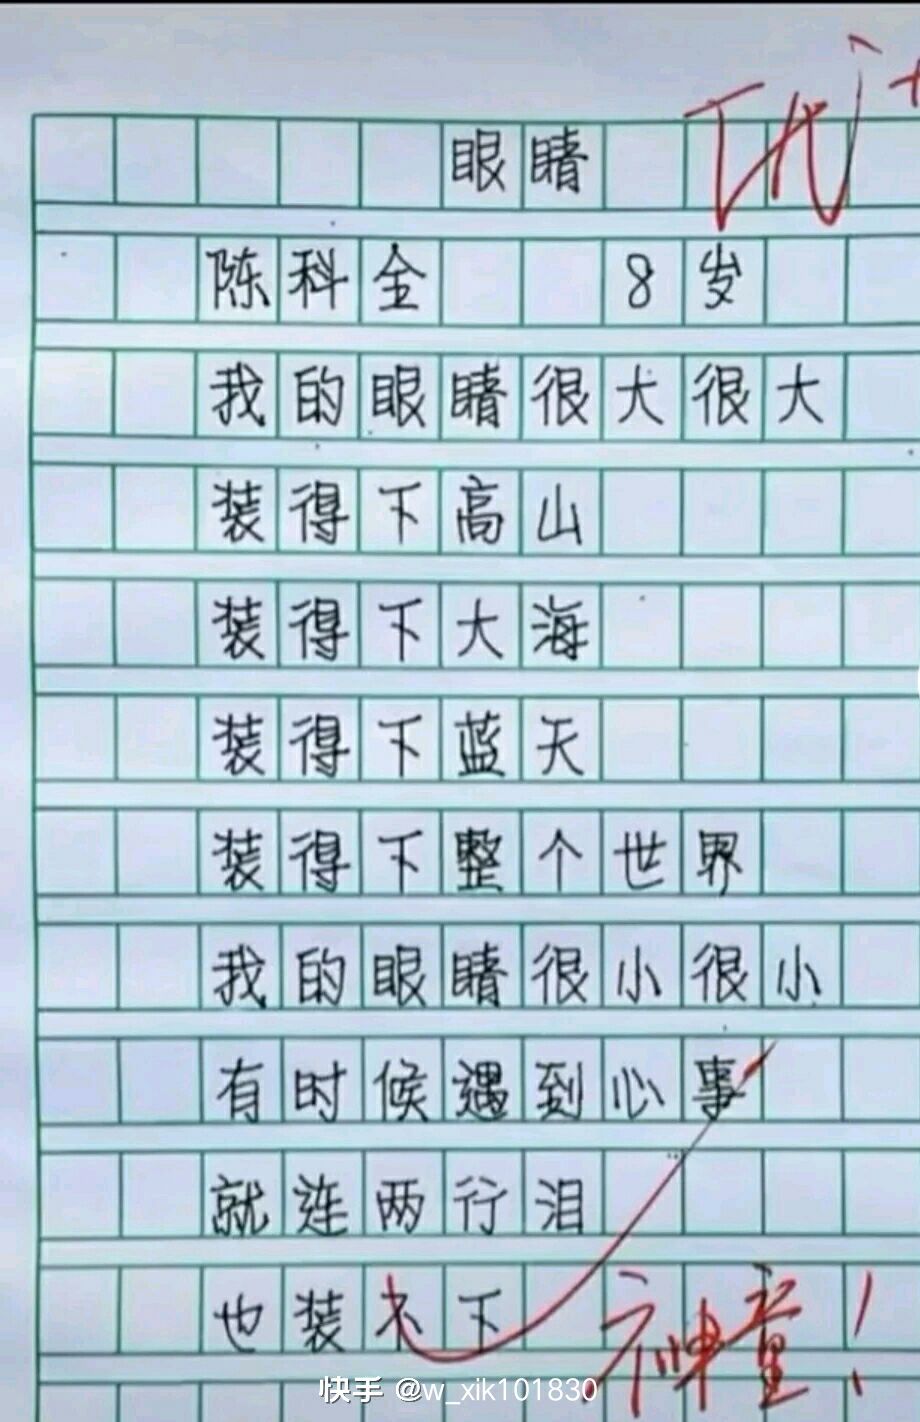 优+
眼睛
陈科全 8岁
我的眼睛很大很大
装得下高山
装得下大海
装得下蓝天
装得下整个世界
我的眼睛很小很小
有时候遇到心事
就连两行泪
也装不下
神童！
快手 @w_xik101830